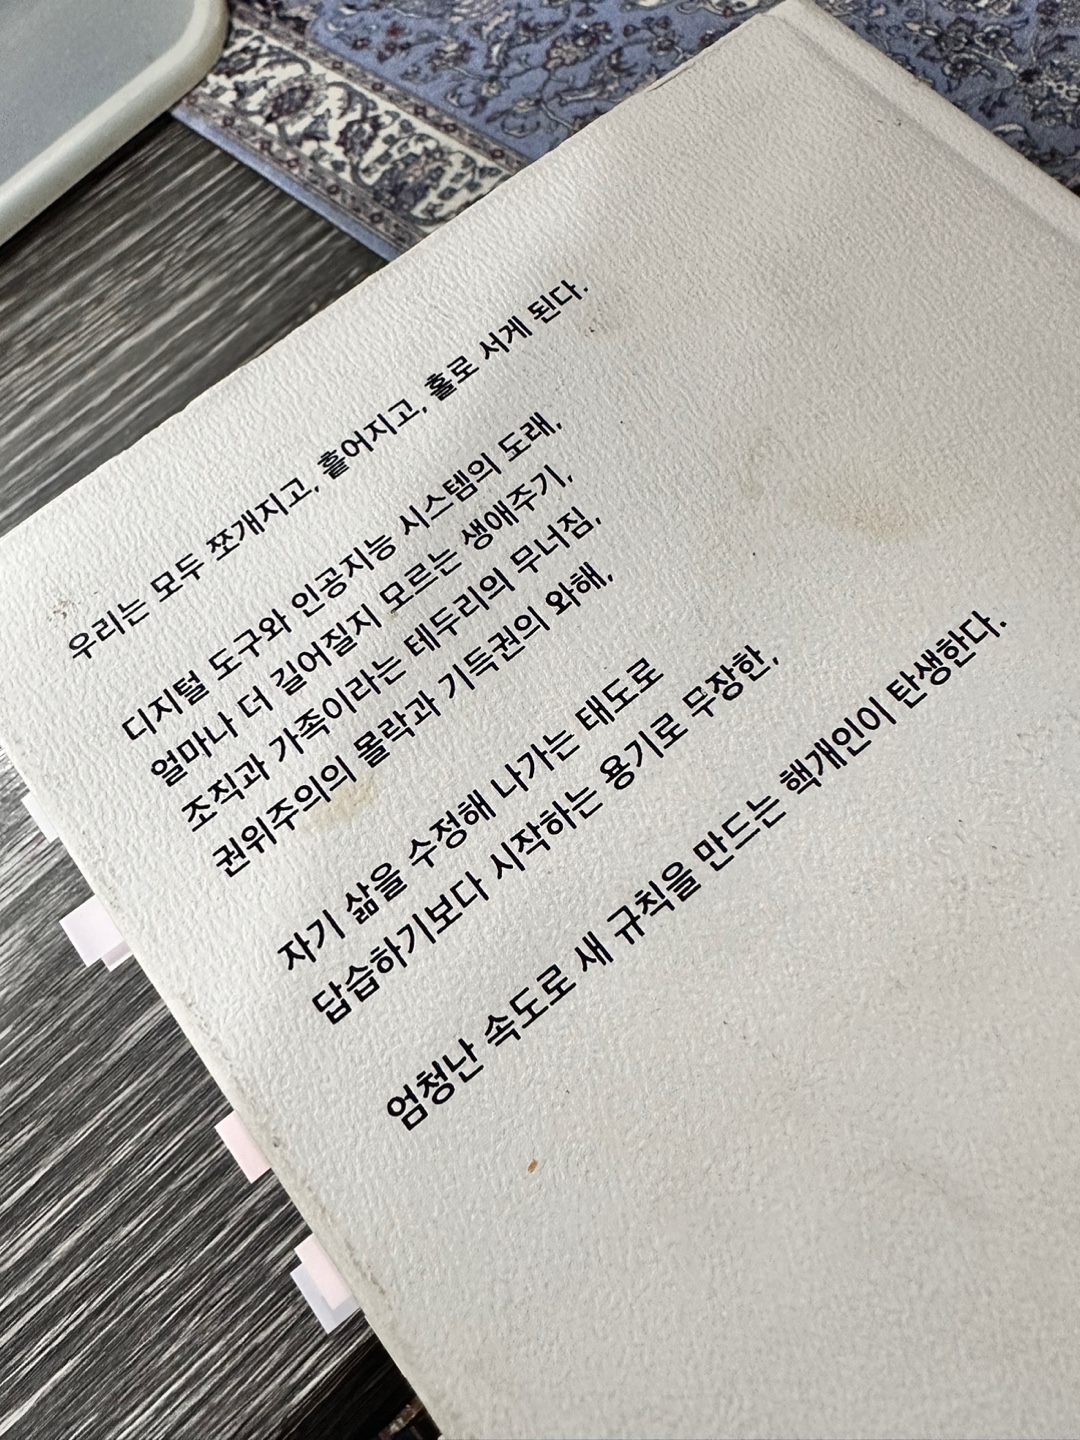 우리는 모두 쪼개지고, 흩어지고, 홀로 서게 된다.
디지털 도구와 인공지능 시스템의 도래,
얼마나 더 길어질지 모르는 생애주기,
조직과 가족이라는 테두리의 무너짐,
권위주의의 몰락과 기득권의 와해,
자기 삶을 수정해 나가는 태도로
답습하기보다 시작하는 용기로 무장한,
엄청난 속도로 새 규칙을 만드는 핵개인이 탄생한다.